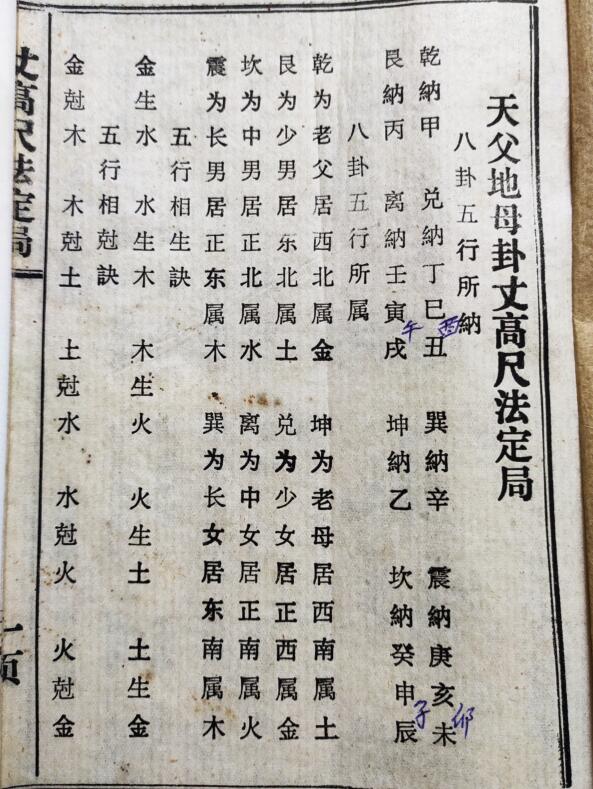 天父地母卦丈高尺法定局
八卦五行所納
乾納甲 兑納丁巳丑 巽納辛 震納庚亥未
酉 卯
艮納丙 离納壬寅戌 坤納乙 坎納癸申辰
午 子
八卦五行所属
乾为老父居西北属金 坤为老母居西南属土
艮为少男居东北属土 兑为少女居正西属金
坎为中男居正北属水 离为中女居正南属火
震为长男居正东属木 巽为长女居东南属木
五行相生訣
金生水 水生木 木生火 火生土 土生金
五行相尅訣
金尅木 木尅土 土尅水 水尅火 火尅金
丈高尺法定局